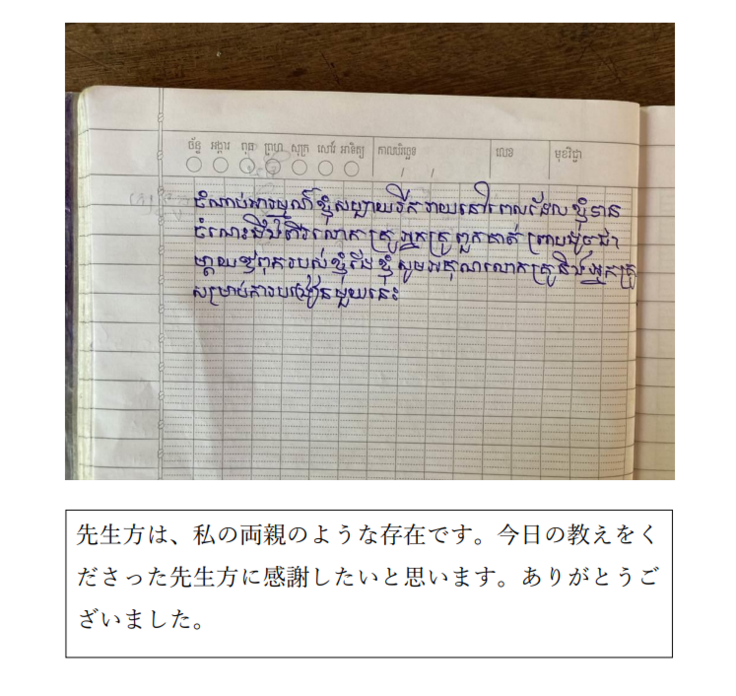 ច័ន្ទ អង្គារ ពុធ ព្រហ សុក្រ សៅរ៍ អាទិត្យ កាលបរិច្ឆេទ លេខ មុខវិជ្ជា
ចំណាប់អារម្មណ៍ ខ្ញុំសប្បាយរីករាយនៅពេលដែលខ្ញុំបាន
ចំណេះដឹងពីលោកគ្រូអ្នកគ្រូ ពួកគាត់ប្រៀបដូចជា
ម្តាយឪពុករបស់ខ្ញុំ ខ្ញុំសូមអរគុណលោកគ្រូនិងអ្នកគ្រូ
សម្រាប់ការបង្រៀនមួយនេះ
先生方は、私の両親のような存在です。今日の教えをく
ださった先生方に感謝したいと思います。ありがとうご
ざいました。